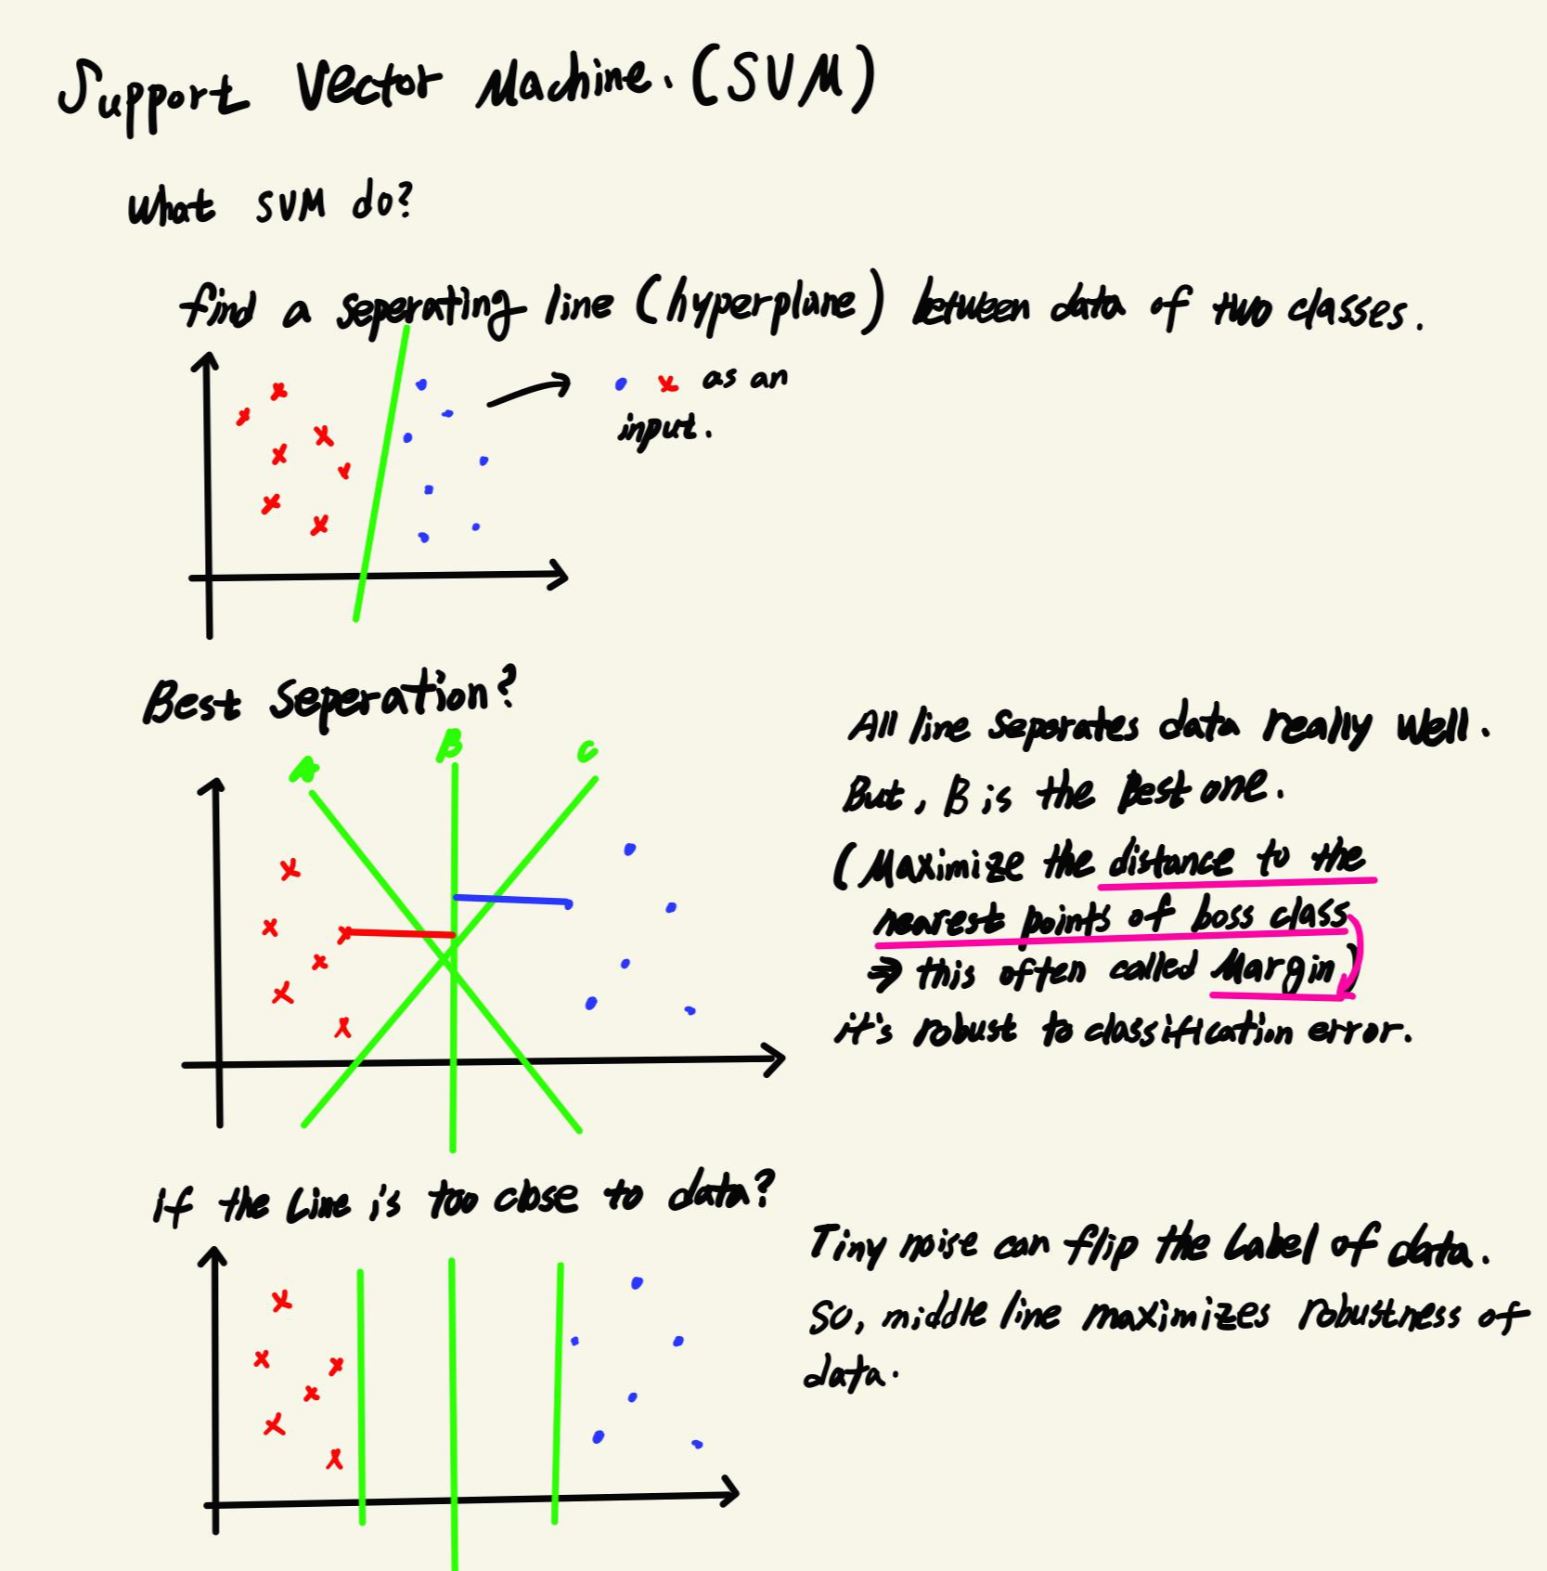 Support Vector Machine. (SVM)
What SVM do?
find a seperating line (hyperplane) between data of two classes.
as an
input.
Best Seperation?
A B C
All line seporates data really well.
But, B is the Best one.
(Maximize the distance to the
nearest points of boss class
⇒ this often called Margin)
it's robust to classification error.
if the Line is too close to data?
Tiny noise can flip the Label of data.
so, middle line maximizes robustness of
data.